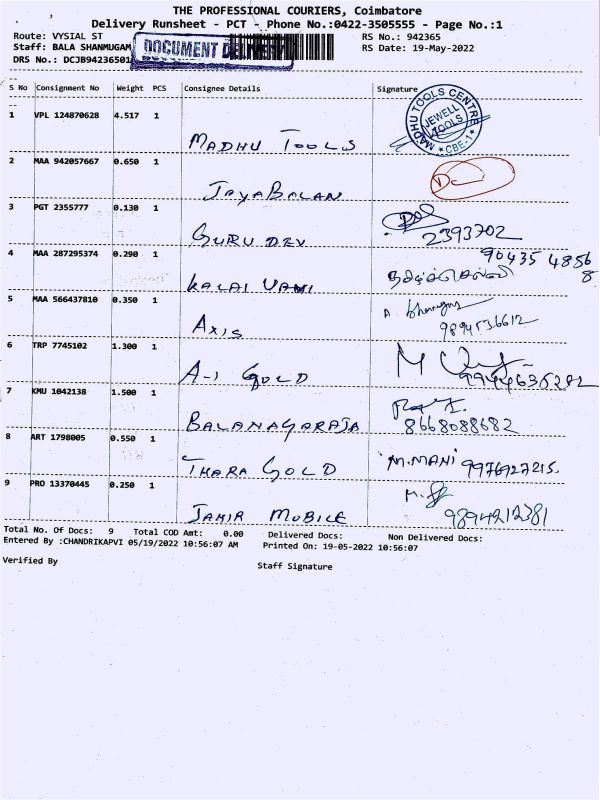 THE PROFESSIONAL COURIERS, Coimbatore
Delivery Runsheet - PCT - Phone No.:0422-3505555 - Page No.:1
Route: VYSIAL ST
RS No.: 942365
Staff: BALA SHANMUGAM
DOCUMENT DELIVERY
RS Date: 19-May-2022
DRS No.: DCJB94236501
S No Consignment No Weight PCS Consignee Details Signature
1 VPL 124870628 4.517 1
MADHU TOOLS
MADHU TOOLS CENTRE
JEWELL TOOLS
* CBE-1 *
2 MAA 942057667 0.650 1
JAYABALAN
3 PGT 2355777 0.130 1
GURU DEV
2393702
4 MAA 287295374 0.290 1
90435 48868
KALAI VANI
5 MAA 566437810 0.350 1
AXIS
9894536612
6 TRP 7745102 1.300 1
A-1 GOLD
7 KMU 1042138 1.500 1
BALANAGARAJA
8668088682
8 ART 1798005 0.550 1
THARA GOLD
M.MANI 9976927215.
9 PRO 13370445 0.250 1
JAMIR MOBILE
9894212381
Total No. Of Docs: 9 Total COD Amt: 0.00 Delivered Docs: Non Delivered Docs:
Entered By :CHANDRIKAPVI 05/19/2022 10:56:07 AM Printed On: 19-05-2022 10:56:07
Verified By
Staff Signature